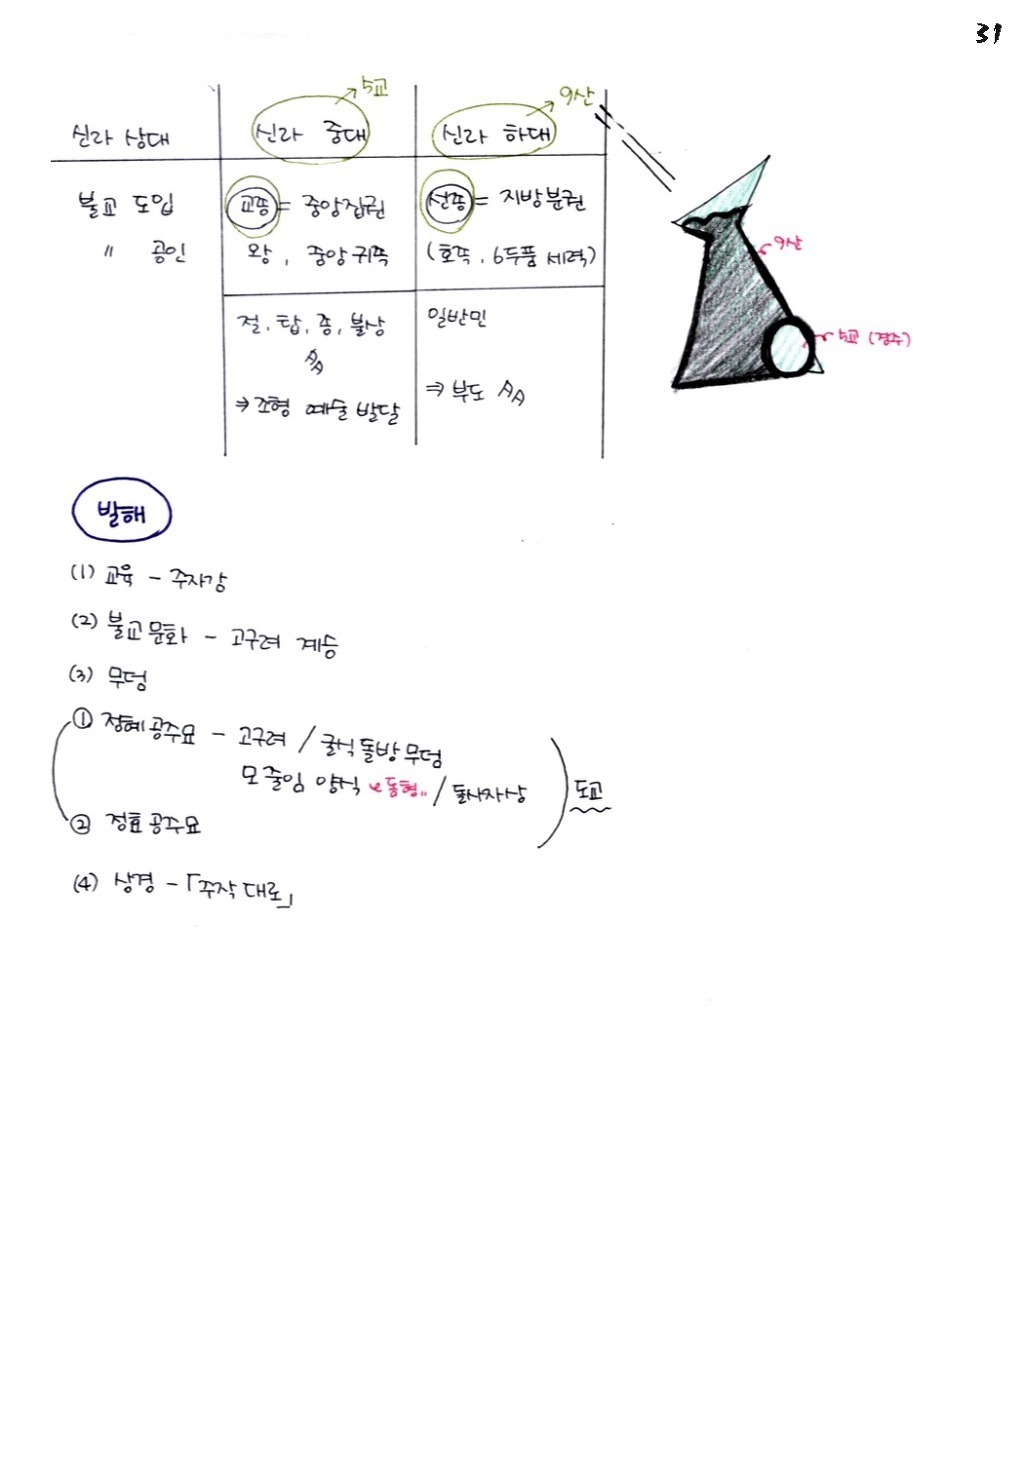 31
5교
9산
신라 상대
신라 중대
신라 하대
불교 도입
〃 공인
교종 = 중앙집권
왕, 중앙귀족
선종 = 지방분권
(호족, 6두품 세력)
절, 탑, 종, 불상
⇒ 조형 예술 발달
일반민
⇒ 부도
9산
5교 (경주)
발해
(1) 교육 - 주자감
(2) 불교문화 - 고구려 계승
(3) 무덤
① 정혜공주묘 - 고구려 / 굴식 돌방 무덤
모줄임 양식 / 돌사자상
도교
② 정효공주묘
(4) 상경 - 「주작대로」